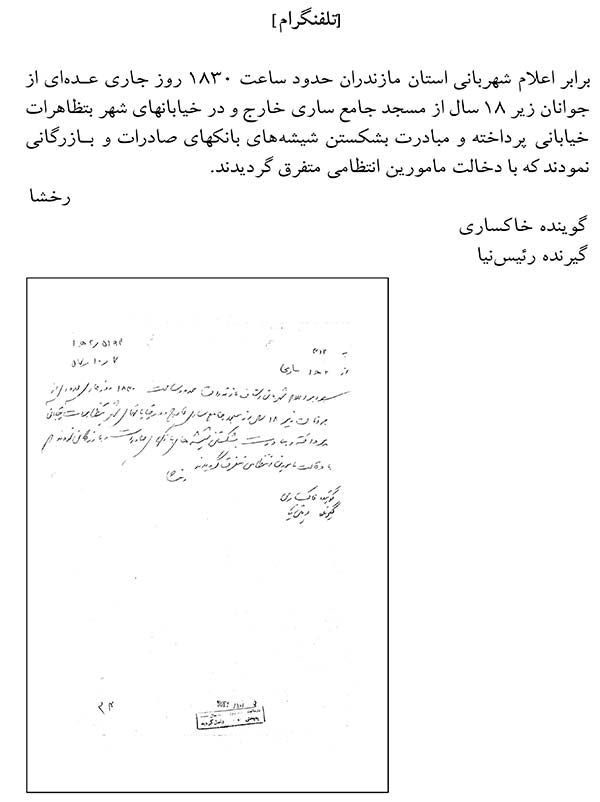 [تلفنگرام]
برابر اعلام شهربانی استان مازندران حدود ساعت ۱۸۳۰ روز جاری عـده‌ای از
جوانان زیر ۱۸ سال از مسجد جامع ساری خارج و در خیابانهای شهر بتظاهرات
خیابانی پرداخته و مبادرت بشکستن شیشه‌های بانکهای صادرات و بـازرگانی
نمودند که با دخالت مامورین انتظامی متفرق گردیدند.
رخشا
گوینده خاکساری
گیرنده رئیس‌نیا
به ۳۱۲
از ۲ ه‍ ۱ ساری
برابر اعلام شهربانی استان مازندران حدود ساعت ۱۸۳۰ روز جاری عده‌ای از
جوانان زیر ۱۸ سال از مسجد جامع ساری خارج و در خیابانهای شهر بتظاهرات خیابانی
پرداخته و مبادرت بشکستن شیشه‌های بانکهای صادرات و بازرگانی نمودند که
با دخالت مامورین انتظامی متفرق گردیدند
رخشا
گوینده خاکساری
گیرنده رئیس‌نیا